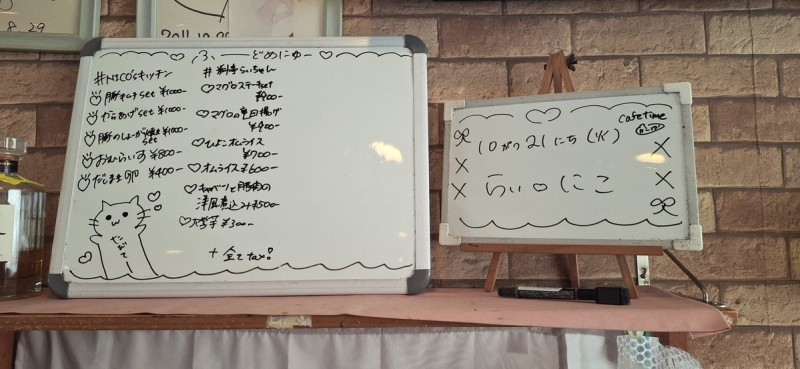 8.29
2011.10.2
ふーどめにゅー
#NICO'sキッチン
豚キムチset ¥1000-
からあげset ¥1000-
豚のしょーが焼き ¥1000-
set
おむらいす ¥800-
だしまき卵 ¥400-
だよて
#料亭らいちゃん
マグロステーキset
¥900-
マグロの竜田揚げ
¥900-
ひよこオムライス
¥700-
オムライス ¥600-
キャベツと豚肉の
洋風煮込み ¥500-
大学芋 ¥300-
+ 全てtax!
cafetime
10がつ21にち(火)
らぃ○にこ